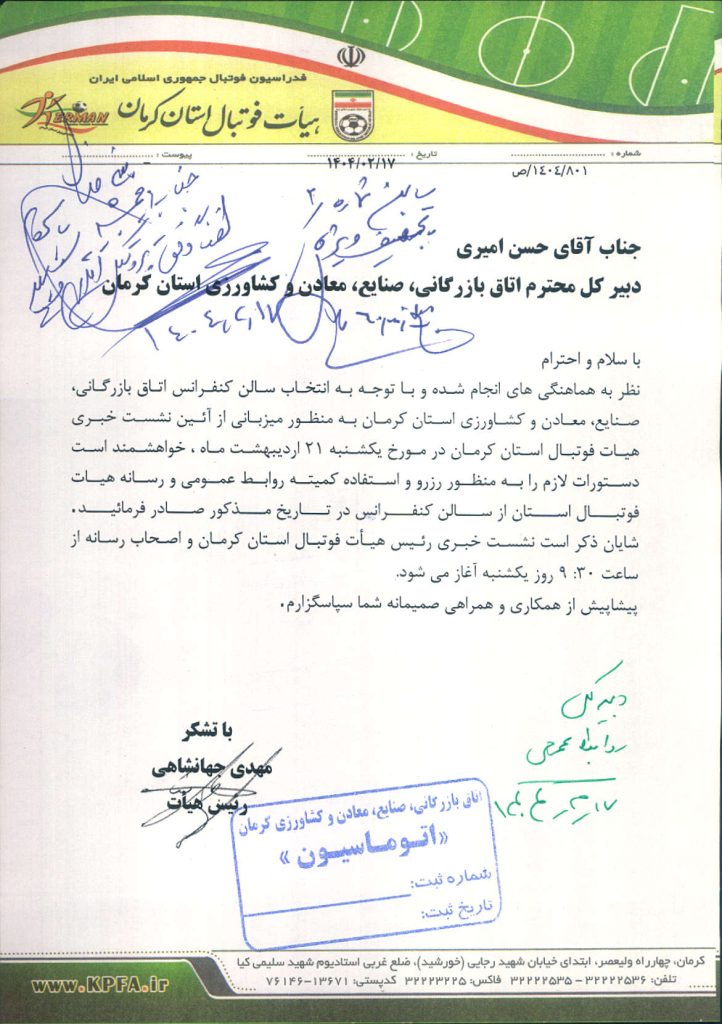 فدراسیون فوتبال جمهوری اسلامی ایران
هیأت فوتبال استان کرمان
KERMAN
شماره :
تاریخ :
پیوست :
۱۴۰۴/۸۰۱/ص
۱۴۰۴/۰۲/۱۷
سالن شماره ۲
جناب آقای حسن امیری
دبیر کل محترم اتاق بازرگانی، صنایع، معادن و کشاورزی استان کرمان
با سلام و احترام
نظر به هماهنگی های انجام شده و با توجه به انتخاب سالن کنفرانس اتاق بازرگانی،
صنایع، معادن و کشاورزی استان کرمان به منظور میزبانی از آئین نشست خبری
هیات فوتبال استان کرمان در مورخ یکشنبه ۲۱ اردیبهشت ماه ، خواهشمند است
دستورات لازم را به منظور رزرو و استفاده کمیته روابط عمومی و رسانه هیات
فوتبـال استان از سالن کنفـرانس در تـاریخ مـذکور صـادر فرمائیـد.
شایان ذکر است نشست خبری رئیس هیأت فوتبال استان کرمان و اصحاب رسانه از
ساعت ۹:۳۰ روز یکشنبه آغاز می شود.
پیشاپیش از همکاری و همراهی صمیمانه شما سپاسگزارم.
دبیرکل
روابط عمومی
با تشکر
مهدی جهانشاهی
رئیس هیأت
اتاق بازرگانی، صنایع، معادن و کشاورزی کرمان
«اتـومـاسیـون»
شماره ثبت:
تاریخ ثبت:
کرمان، چهارراه ولیعصر، ابتدای خیابان شهید رجایی (خورشید)، ضلع غربی استادیوم شهید سلیمی کیا
تلفن: ۳۲۲۲۲۵۳۶ - ۳۲۲۲۲۵۳۵ فاکس: ۳۲۲۲۳۲۲۵ کدپستی: ۱۳۶۷۱-۷۶۱۴۶
www.KPFA.ir